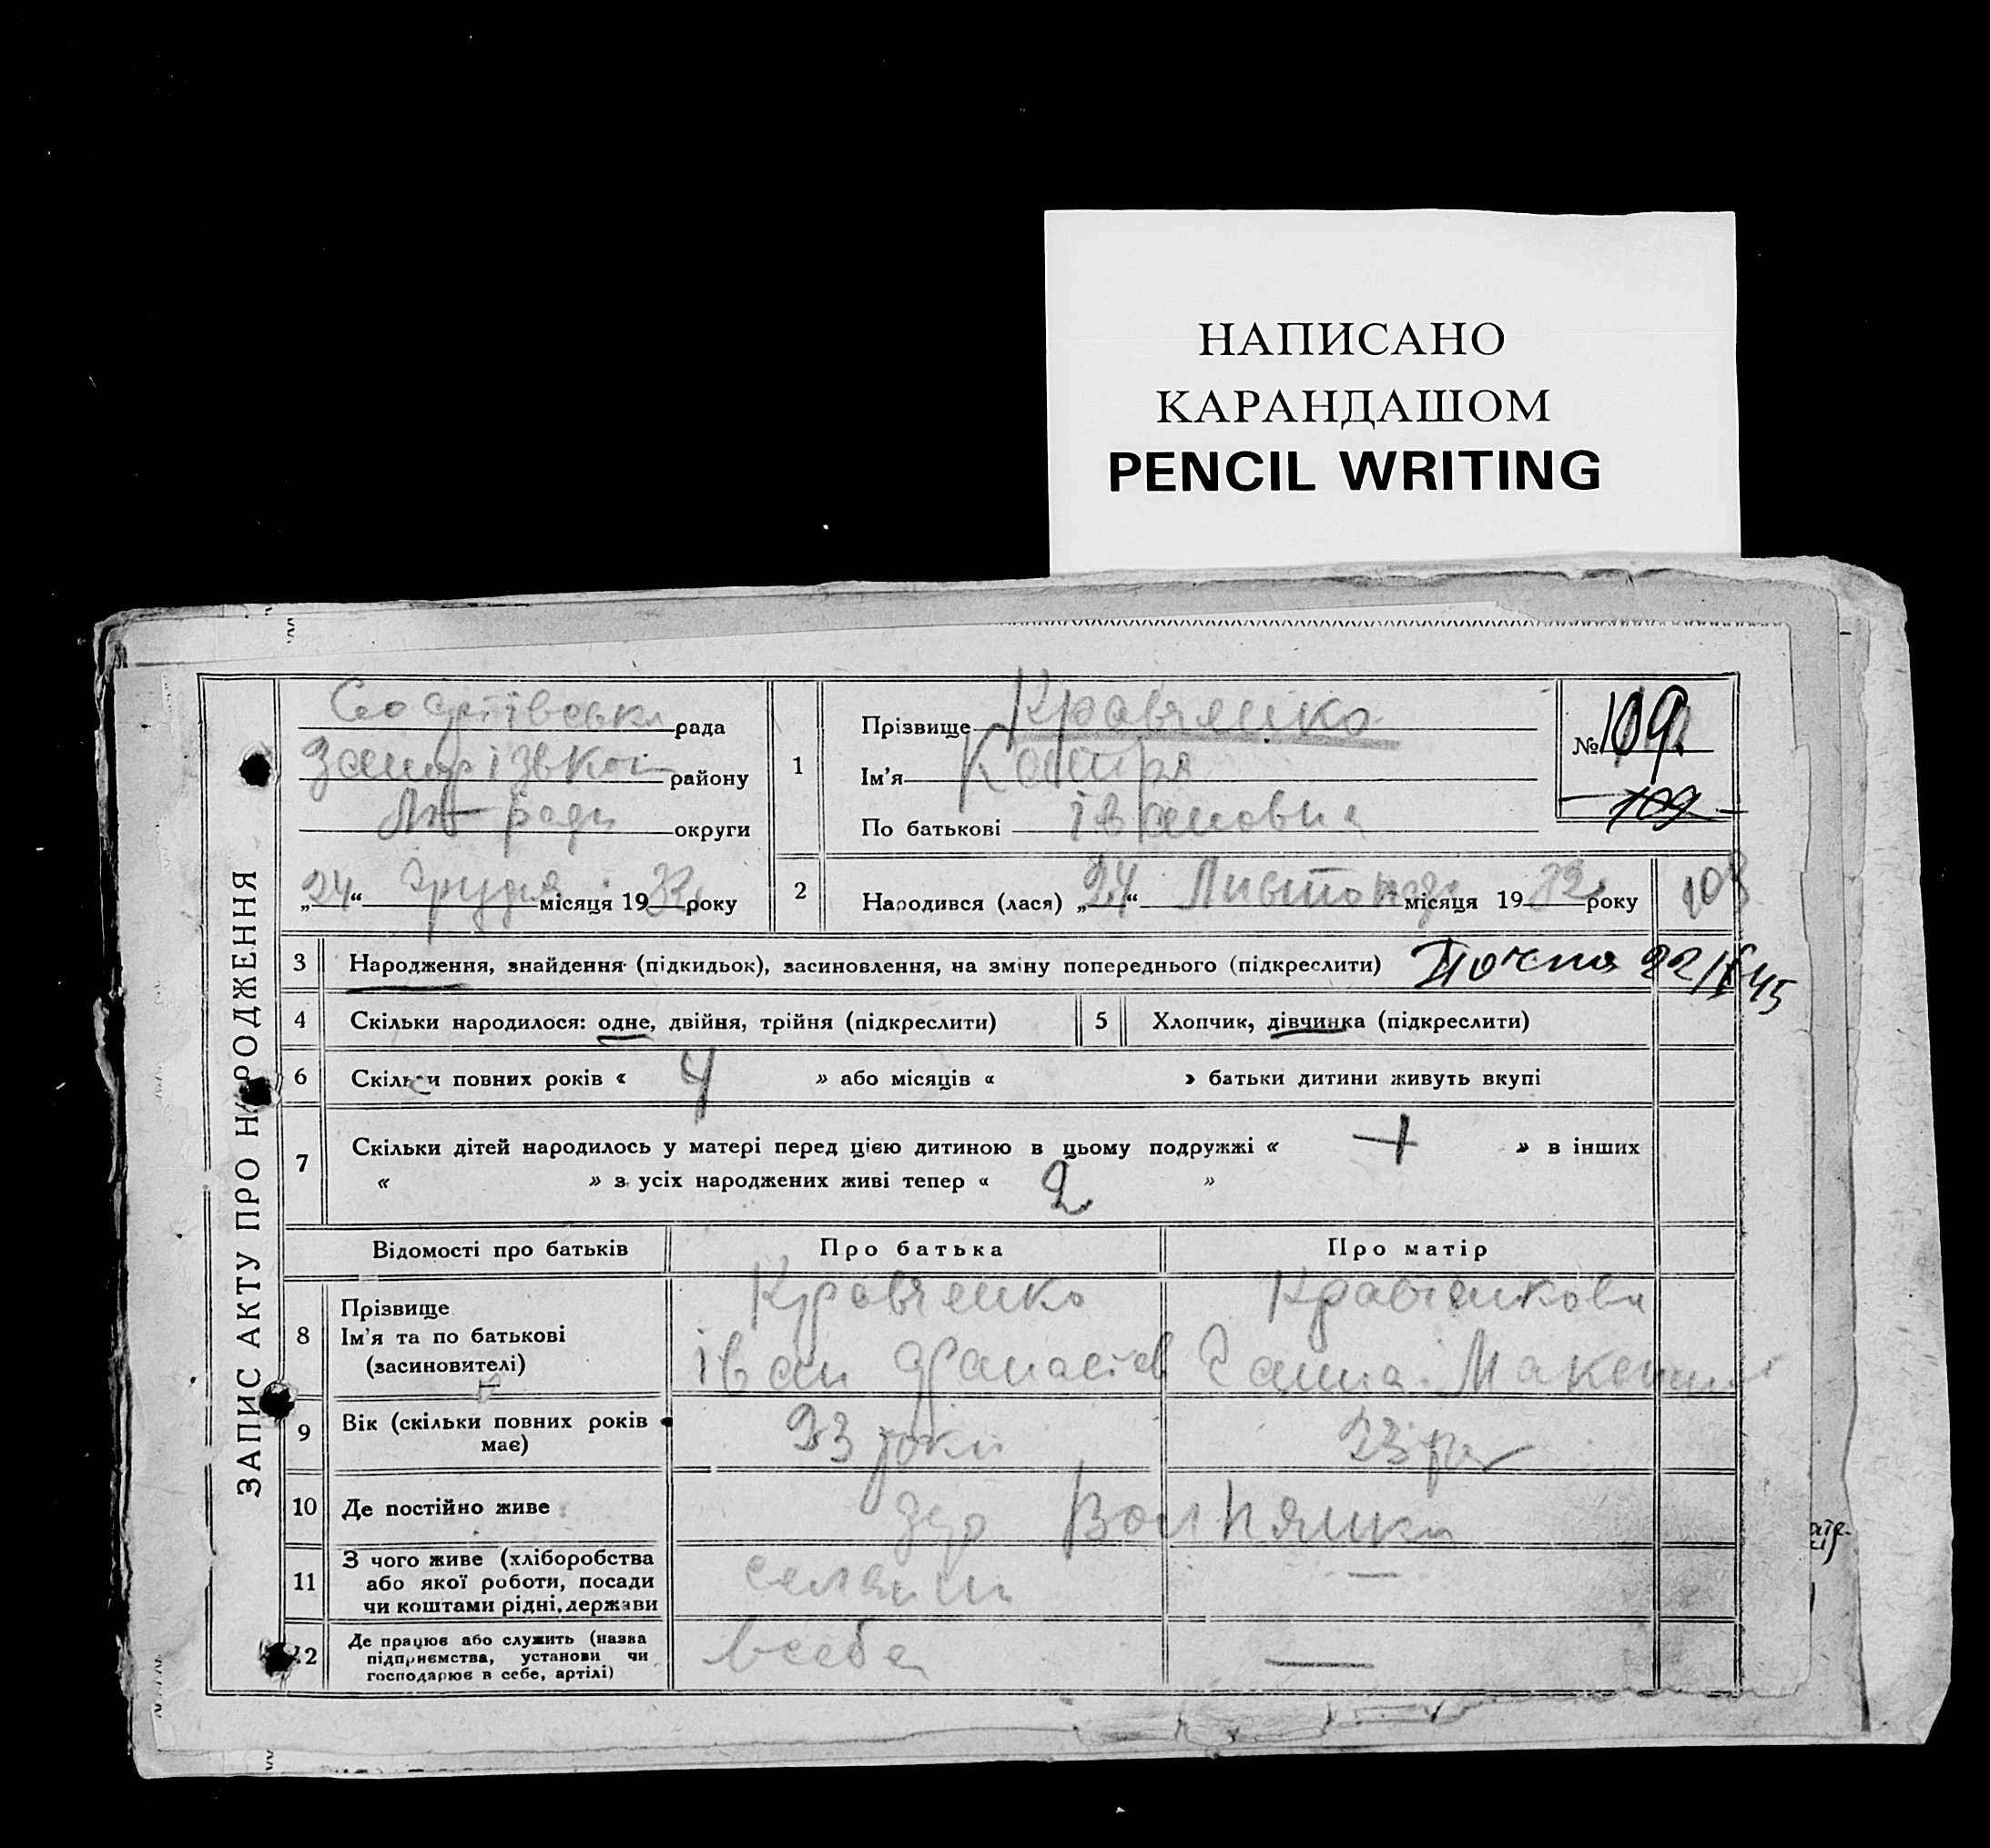 НАПИСАНО
КАРАНДАШОМ
PENCIL WRITING
ЗАПИС АКТУ ПРО НАРОДЖЕННЯ
Софіївська рада
району
округи
„24“ Грудня місяця 1932 року
1
Прізвище Кравченко
Ім'я
По батькові Івановна
№ 109
109
2
Народився (лася) „24“ Листопада місяця 1932 року
103
3 Народження, знайдення (підкидьок), засиновлення, на зміну попереднього (підкреслити)
4 Скільки народилося: одне, двійня, трійня (підкреслити)
5 Хлопчик, дівчинка (підкреслити)
6 Скільки повних років « 4 » або місяців « » батьки дитини живуть вкупі
7 Скільки дітей народилось у матері перед цією дитиною в цьому подружжі « » в інших
« » з усіх народжених живі тепер « 2 »
Відомості про батьків Про батька Про матір
8 Прізвище
Ім'я та по батькові
(засиновителі)
Кравченко
Іван
Кравченкова
Ганна
9 Вік (скільки повних років
має)
23 роки
23
10 Де постійно живе
11 З чого живе (хліборобства
або якої роботи, посади
чи коштами рідні, держави
селянин
—
12 Де працює або служить (назва
підприємства, установи чи
господарює в себе, артілі)
в себе
—